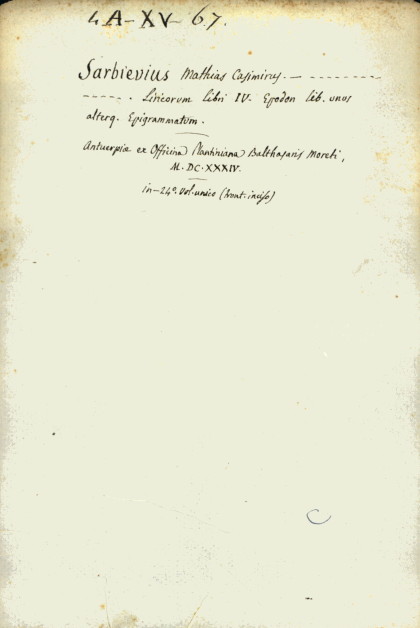 4A-XV-67.
Sarbievius Mathias Casimirus. — - - - - - - -
- - - - . Liricorum libri IV. Epodon lib. unus
alterq. Epigrammatum.
Antuerpiæ ex Officina Plantiniana Balthasaris Moreti,
M.DC.XXXIV.
in-24.º vol. unico (front. inciso)
C